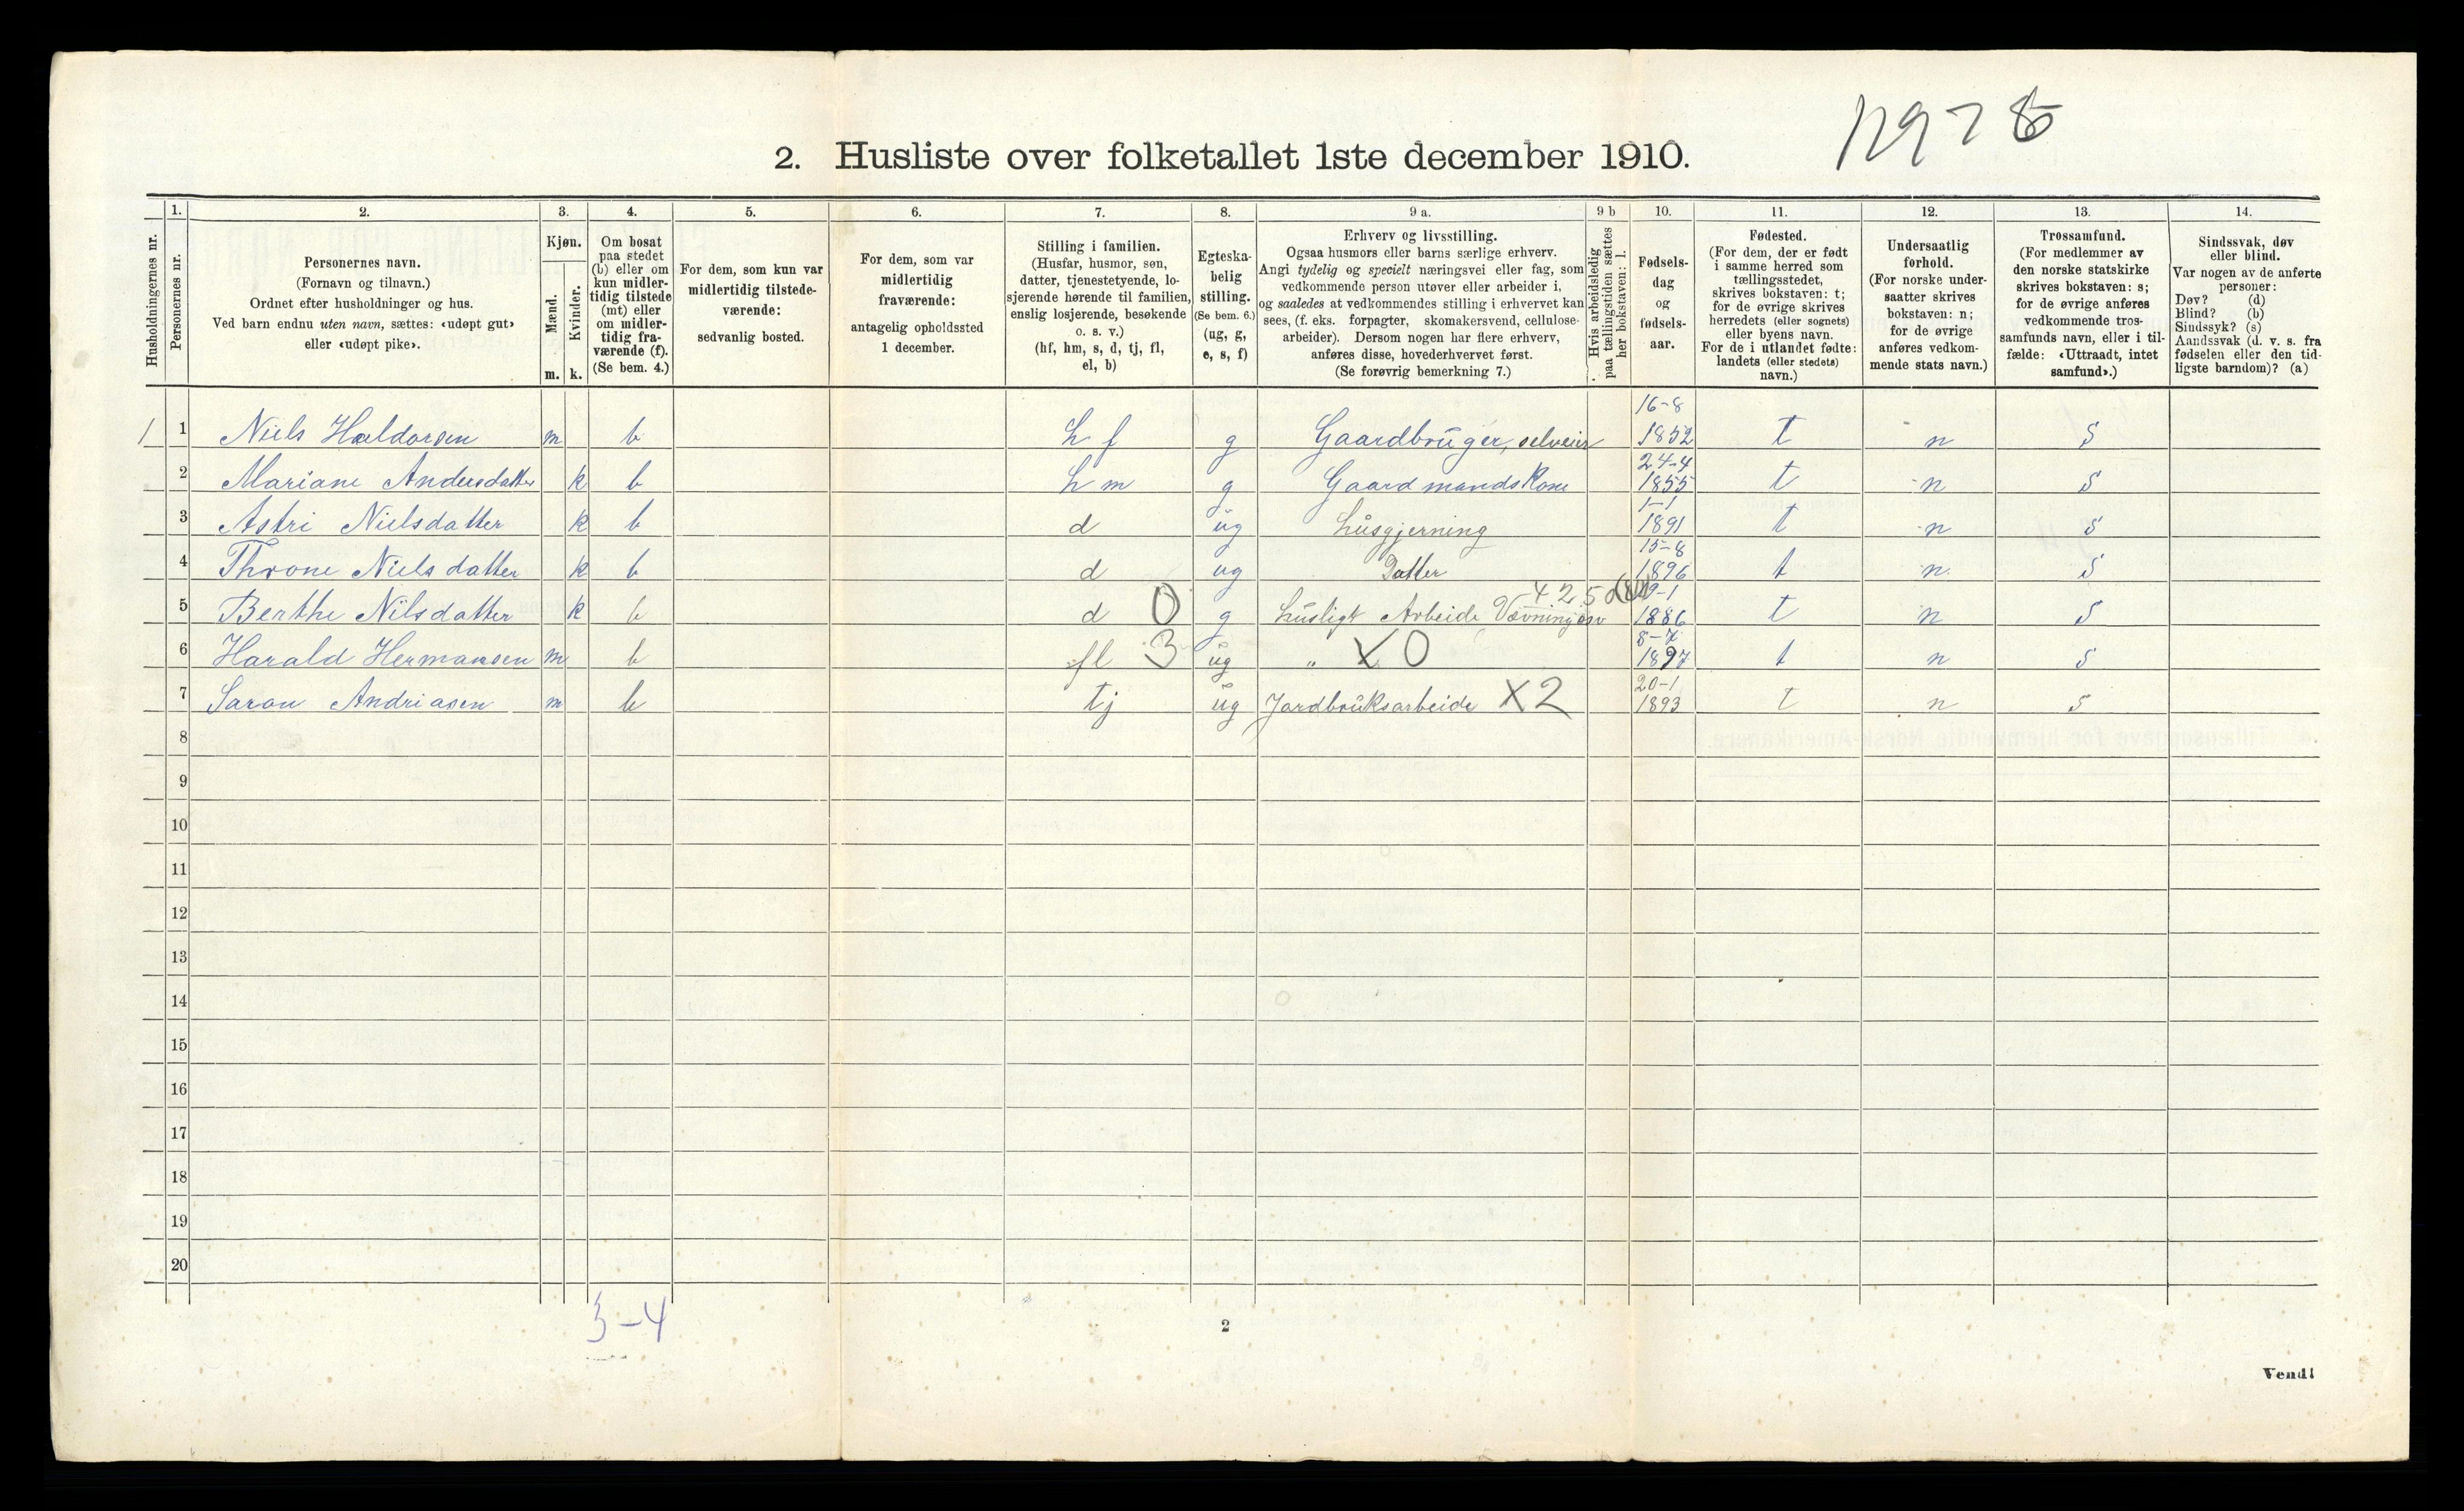 2. Husliste over folketallet 1ste december 1910.
Husholdningernes nr.
1.
Personernes nr.
2.
Personernes navn.
(Fornavn og tilnavn.)
Ordnet efter husholdninger og hus.
Ved barn endnu uten navn, sættes: «udøpt gut»
eller «udøpt pike».
3.
Kjøn.
Mænd.
Kvinder.
m. k.
4.
Om bosat
paa stedet
(b) eller om
kun midler-
tidig tilstede
(mt) eller
om midler-
tidig fra-
værende (f).
(Se bem. 4.)
5.
For dem, som kun var
midlertidig tilstede-
værende:
sedvanlig bosted.
6.
For dem, som var
midlertidig
fraværende:
antagelig opholdssted
1 december.
7.
Stilling i familien.
(Husfar, husmor, søn,
datter, tjenestetyende, lo-
sjerende hørende til familien,
enslig losjerende, besøkende
o. s. v.)
(hf, hm, s, d, tj, fl,
el, b)
8.
Egteska-
belig
stilling.
(Se bem. 6.)
(ug, g,
e, s, f)
9 a.
Erhverv og livsstilling.
Ogsaa husmors eller barns særlige erhverv.
Angi tydelig og specielt næringsvei eller fag, som
vedkommende person utøver eller arbeider i,
og saaledes at vedkommendes stilling i erhvervet kan
sees, (f. eks. forpagter, skomakersvend, cellulose-
arbeider). Dersom nogen har flere erhverv,
anføres disse, hovederhvervet først.
(Se forøvrig bemerkning 7.)
9 b
Hvis arbeidsledig
paa tællingstiden sættes
her bokstaven: l.
10.
Fødsels-
dag
og
fødsels-
aar.
11.
Fødested.
(For dem, der er født
i samme herred som
tællingsstedet,
skrives bokstaven: t;
for de øvrige skrives
herredets (eller sognets)
eller byens navn.
For de i utlandet fødte:
landets (eller stedets)
navn.)
12.
Undersaatlig
forhold.
(For norske under-
saatter skrives
bokstaven: n;
for de øvrige
anføres vedkom-
mende stats navn.)
13.
Trossamfund.
(For medlemmer av
den norske statskirke
skrives bokstaven: s;
for de øvrige anføres
vedkommende tros-
samfunds navn, eller i til-
fælde: «Uttraadt, intet
samfund».)
14.
Sindssvak, døv
eller blind.
Var nogen av de anførte
personer:
Døv? (d)
Blind? (b)
Sindssyk? (s)
Aandssvak (d. v. s. fra
fødselen eller den tid-
ligste barndom)? (a)
1 1 Niels Haldorsen m b h f g Gaardbrüger, selveier 16-8 1852 t n s
2 Mariane Andersdatter k b h m g Gaardmandskone 24-4 1855 t n s
3 Astri Nielsdatter k b d üg hüsgjerning 1-1 1891 t n s
4 Throne Nielsdatter k b d ug Datter 15-8 1896 t n s
5 Berthe Nilsdatter k b d 0 g hüsligt Arbeide Vævning osv 425 9-1 1886 t n s
6 Harald Hermansen m b fl 3 üg " X 0 8-7 1897 t n s
7 Saron Andriasen m b tj üg Jordbrüksarbeide X 2 20-1 1893 t n s
8
9
10
11
12
13
14
15
16
17
18
19
20
3-4
2
Vend!